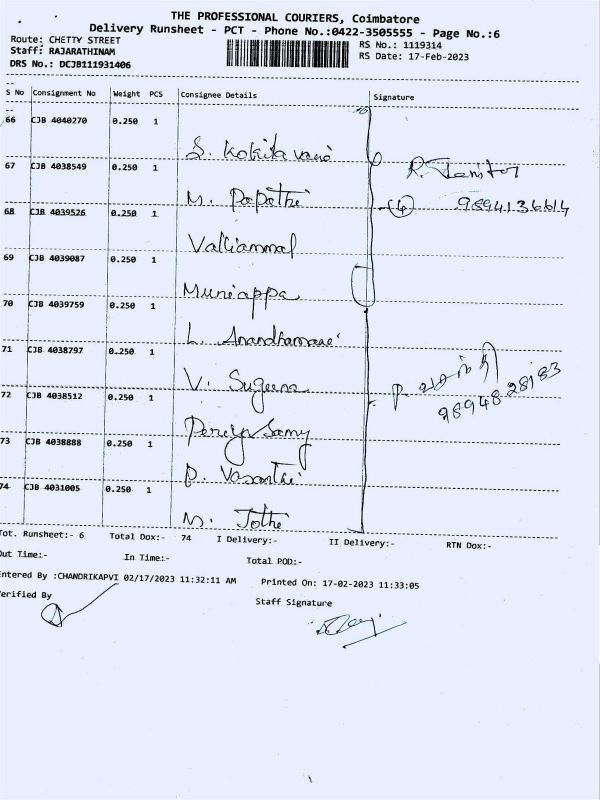 THE PROFESSIONAL COURIERS, Coimbatore
Delivery Runsheet - PCT - Phone No.:0422-3505555 - Page No.:6
Route: CHETTY STREET
RS No.: 1119314
Staff: RAJARATHINAM
RS Date: 17-Feb-2023
DRS No.: DCJB111931406
S No Consignment No Weight PCS Consignee Details Signature
66 CJB 4040270 0.250 1
S. Kokila vani
67 CJB 4038549 0.250 1
R.
M. Papathi
(4) 9894136614
68 CJB 4039526 0.250 1
Valliammal
69 CJB 4039087 0.250 1
Muniappa
70 CJB 4039759 0.250 1
L.
71 CJB 4038797 0.250 1
V. Sugeena
P. வசந்தி
9894828183
72 CJB 4038512 0.250 1
Periya Samy
73 CJB 4038888 0.250 1
P. Vasanthi
74 CJB 4031005 0.250 1
M. Jothi
Tot. Runsheet:- 6 Total Dox:- 74 I Delivery:- II Delivery:- RTN Dox:-
Out Time:- In Time:- Total POD:-
Entered By :CHANDRIKAPVI 02/17/2023 11:32:11 AM Printed On: 17-02-2023 11:33:05
Verified By
Staff Signature